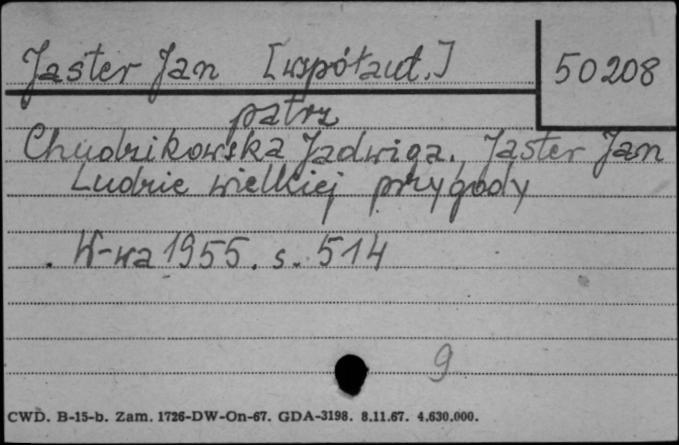 Jaster Jan [współaut.] 50208
patrz
Chudzikowska Jadwiga., Jaster Jan
Ludzie wielkiej przygody
. W-wa 1955. s. 514
9
CWD. B-15-b. Zam. 1726-DW-On-67. GDA-3198. 8.11.67. 4.630.000.